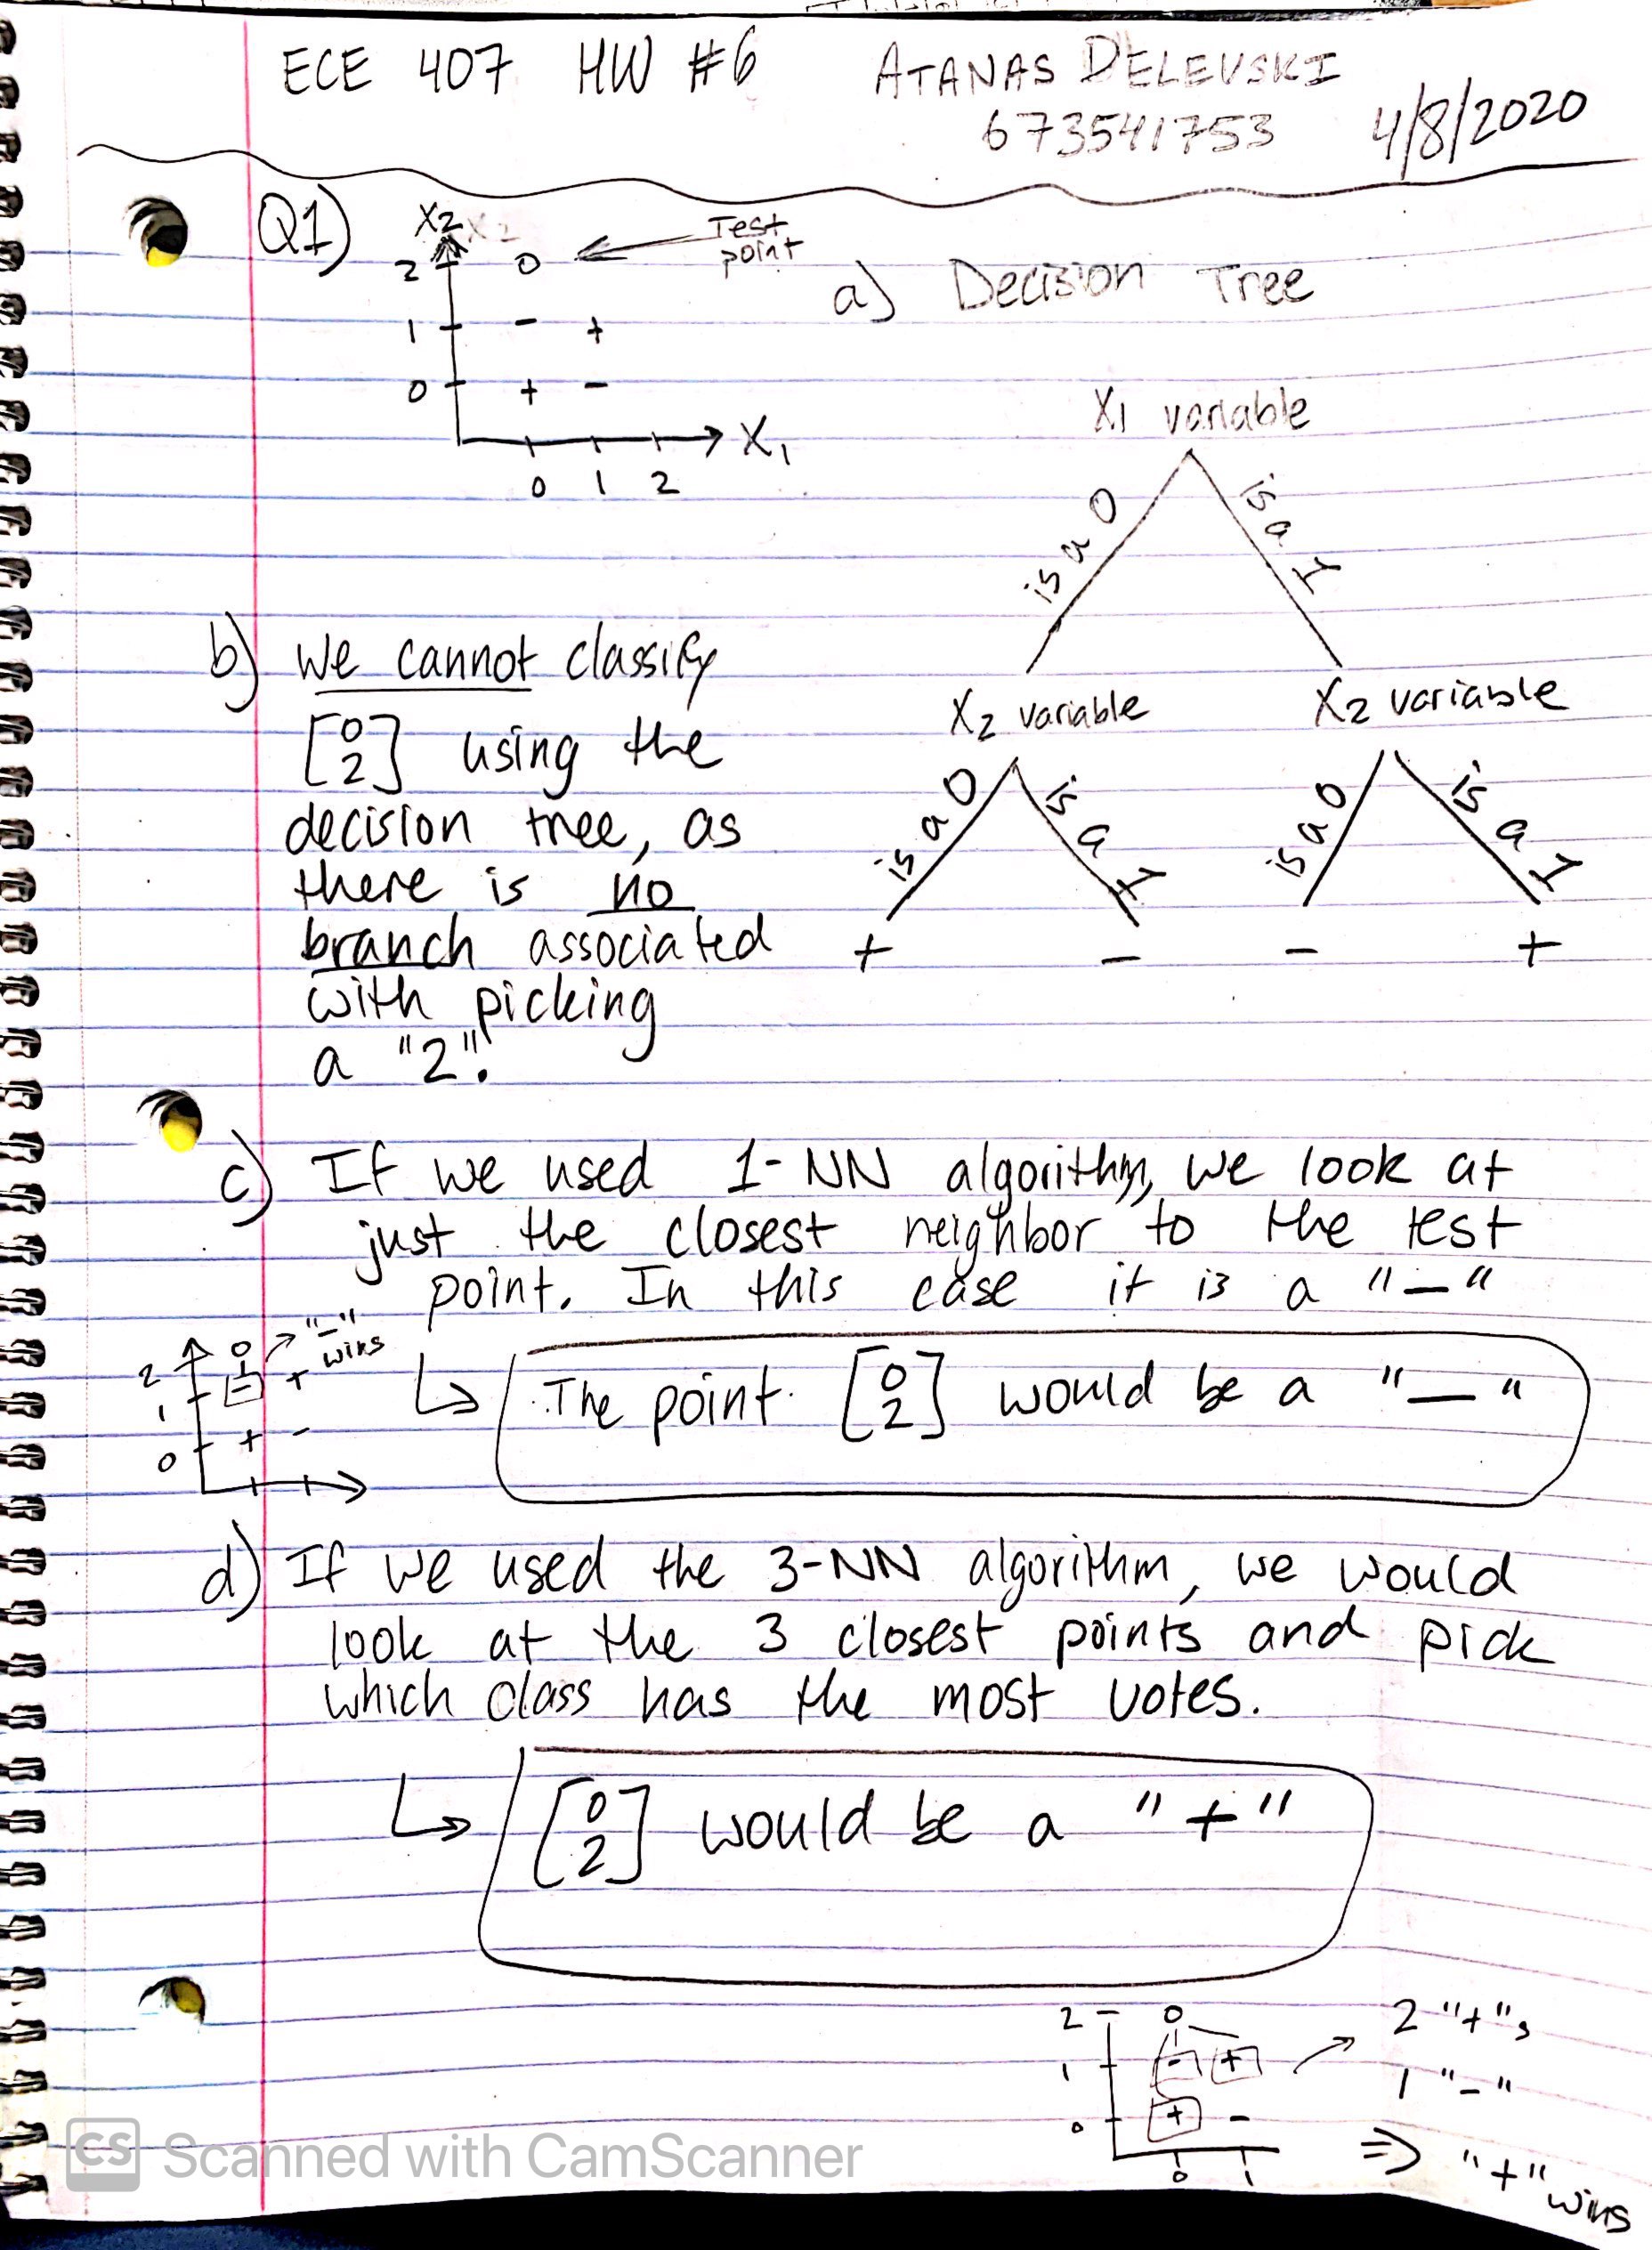 ECE 407 HW #6 ATANAS DELEVSKI
673541753 4/8/2020
Q1)
X2 X2
2 O Test point
1 - +
0 + -
X1
0 1 2
a) Decision Tree
X1 variable
is a 0 is a 1
X2 variable X2 variable
is a 0 is a 1 is a 0 is a 1
+ - - +
b) We cannot classify
[0 2] using the
decision tree, as
there is no
branch associated
with picking
a "2".
c) If we used 1-NN algorithm, we look at
just the closest neighbor to the test
point. In this case it is a "—"
"—" wins
2 O
1 - +
0 + -
∴ The point [0 2] would be a "—"
d) If we used the 3-NN algorithm, we would
look at the 3 closest points and pick
which class has the most votes.
[0 2] would be a "+"
2 O
1 - +
0 + -
0 1
2 "+"s
1 "-"
=> "+" wins
CS Scanned with CamScanner